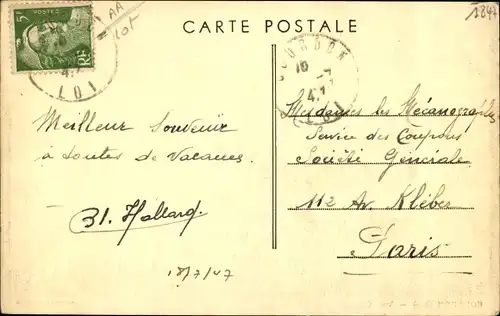 CARTE POSTALE
5F
POSTES
RF
LOT
GOURDON
LOT
Meilleur Souvenir
à toutes de Vacances.
Bl. Hallard.
18/7/47
Mesdames les Mécanographes
Service des Coupons
Société Générale
112 Av. Kléber
Paris